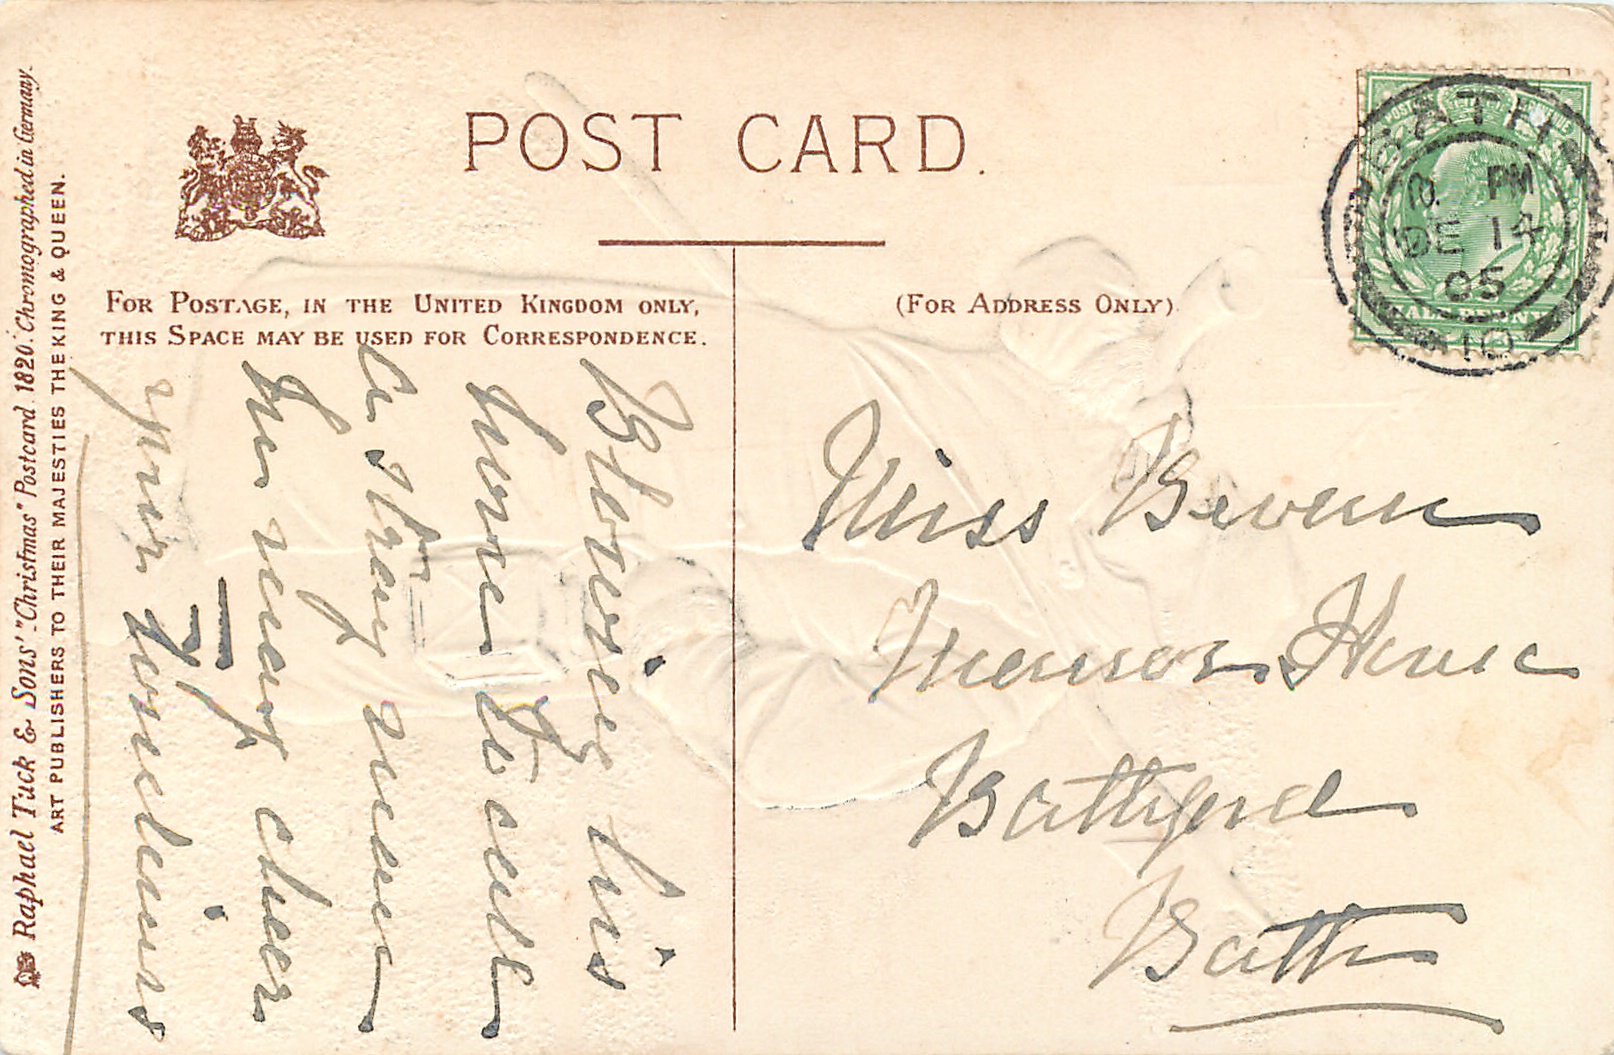 POST CARD.
FOR POSTAGE, IN THE UNITED KINGDOM ONLY,
THIS SPACE MAY BE USED FOR CORRESPONDENCE.
(FOR ADDRESS ONLY)
Blowing his
horn to call
a stray
may cheer
your
Miss Beven
Manor House
Bathford
Bath
BATH
PM
DE 14
05
10
HALF PENNY
Raphael Tuck & Sons' "Christmas" Postcard 1820. Chromographed in Germany.
ART PUBLISHERS TO THEIR MAJESTIES THE KING & QUEEN.